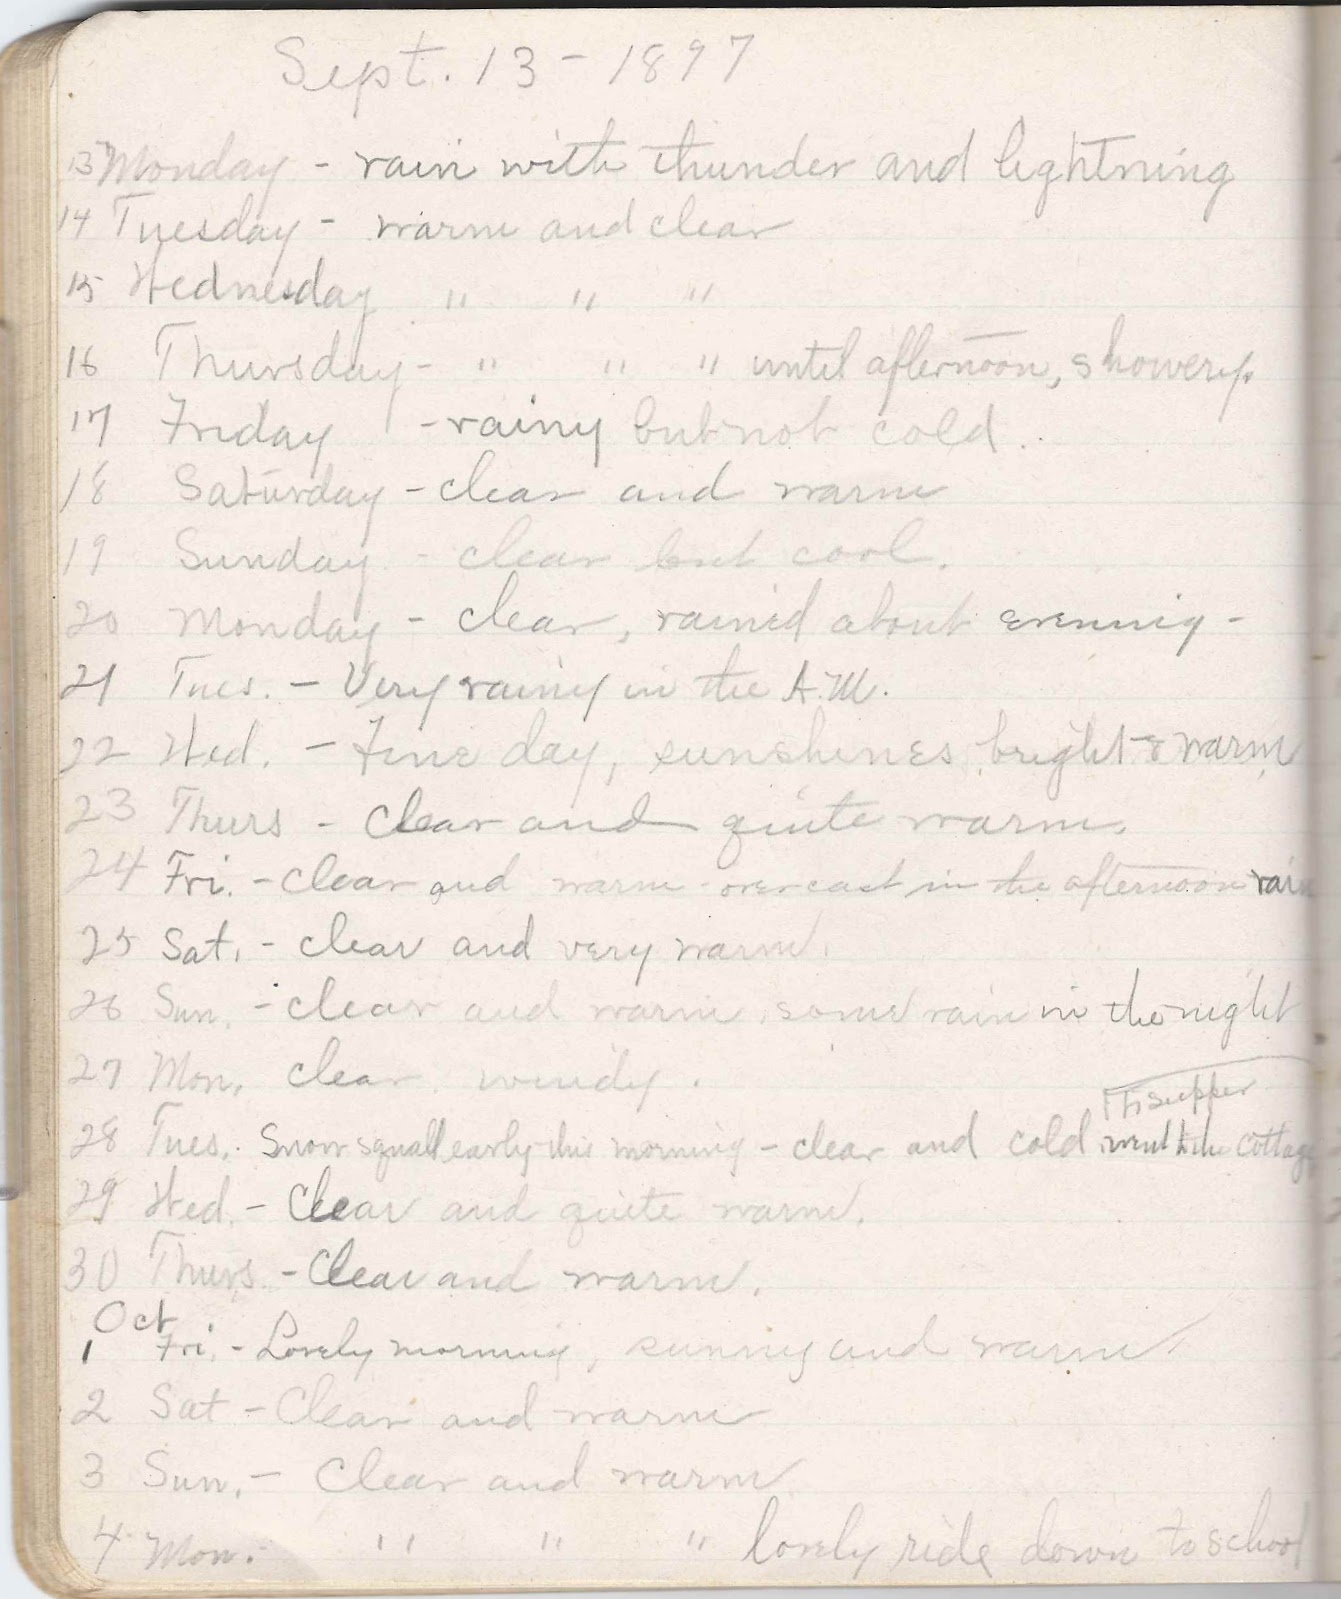 Sept. 13 - 1897
13 Monday - rain with thunder and lightning
14 Tuesday - warm and clear
15 Wednesday " " "
16 Thursday - " " " until afternoon, showery.
17 Friday - rainy but not cold.
18 Saturday - clear and warm
19 Sunday - clear but cool.
20 Monday - clear, rained about evening -
21 Tues. - Very rainy in the A.M.
22 Wed. - Fine day, sunshines bright & warm
23 Thurs - Clear and quite warm.
24 Fri. - Clear and warm - overcast in the afternoon rain
25 Sat. - clear and very warm.
26 Sun. - Clear and warm, some rain in the night
27 Mon. clear windy.
to supper
28 Tues. Snow squall early this morning - clear and cold went to the cottage
29 Wed. - Clear and quite warm.
30 Thurs. - Clear and warm.
Oct.
1 Fri. - Lovely morning, sunny and warm.
2 Sat - Clear and warm
3 Sun. - Clear and warm
4 Mon. " " " lovely ride down to school